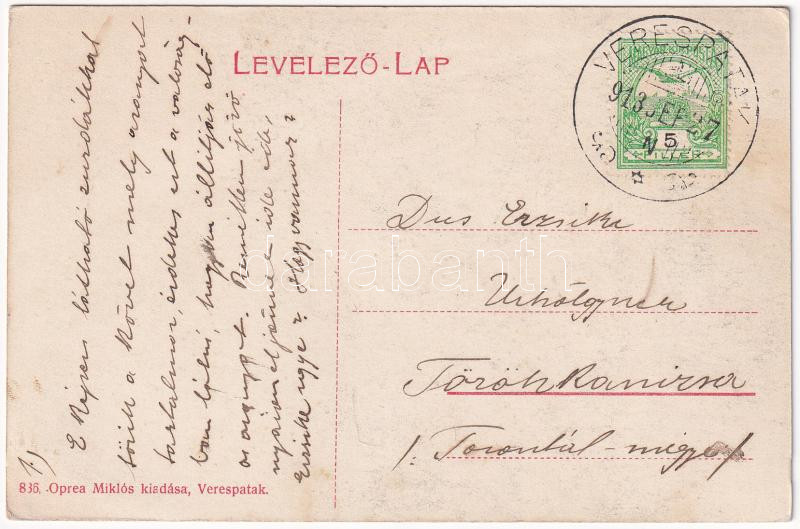 LEVELEZŐ-LAP
VERESPATAK
913 SEP 27
MAGYAR KIR. POSTA
5
FILLÉR
E képen látható zuzdákkal
törik a követ mely aranyat
tartalmaz, érdekes ezt a valóság-
ban látni, hogyan állítják elő
az aranyat. Remélem jövő
nyáron eljönnek ide
Erzsike ugye? Hogy vannak?
1)
Dus Erzsike
Urhölgynek
Törökkanizsa
/: Torontál-megye /
836. Oprea Miklós kiadása, Verespatak.
darabanth